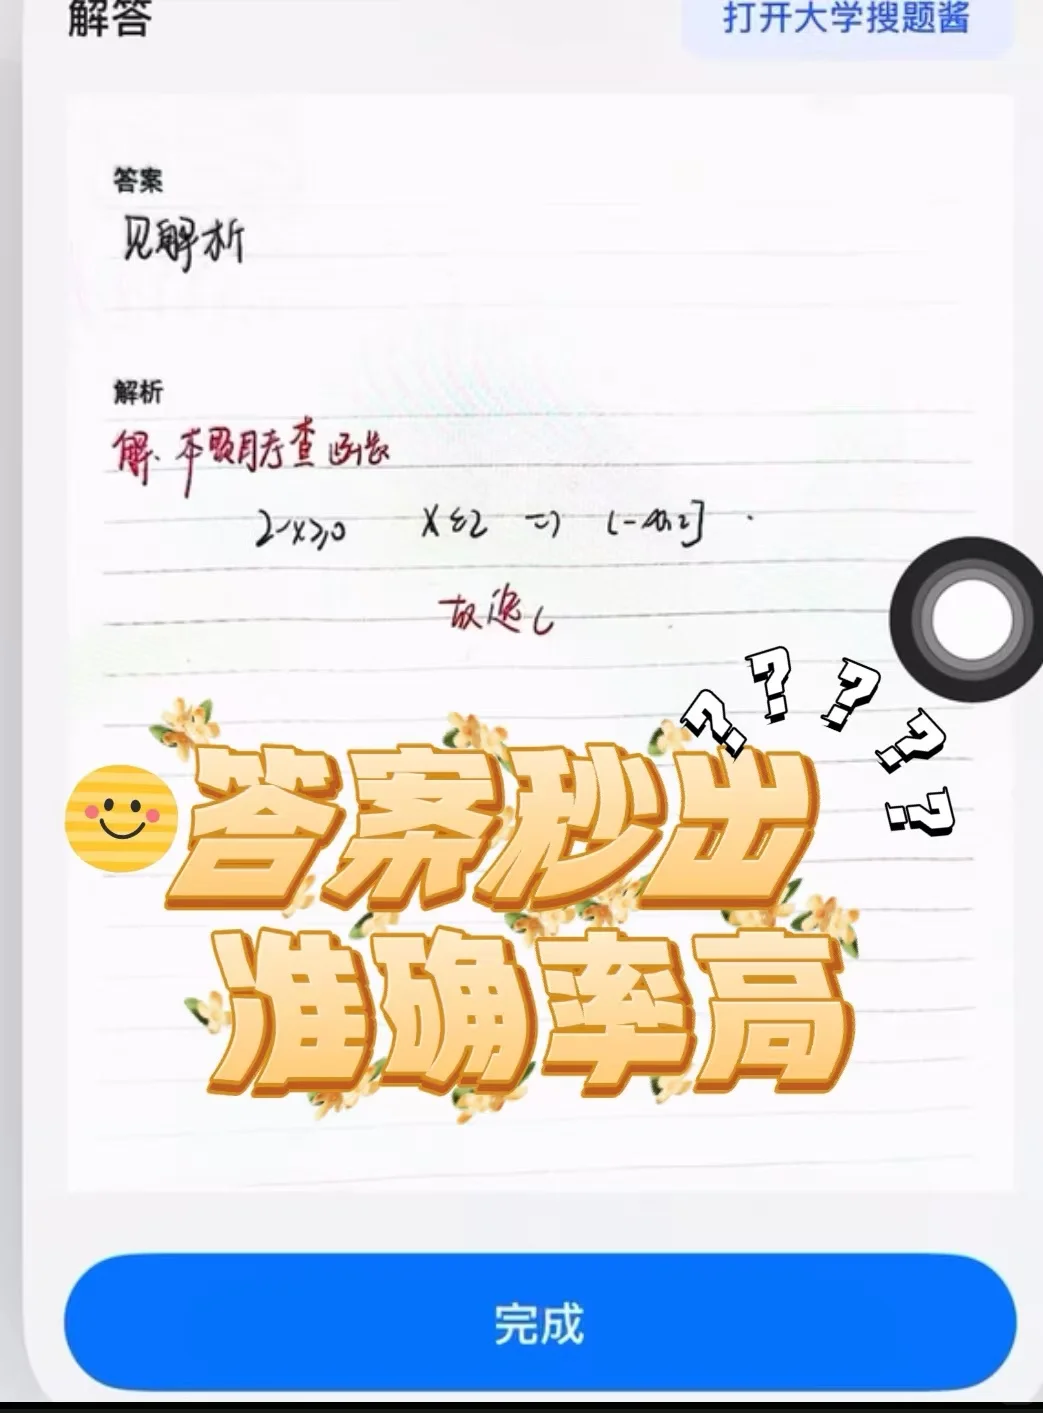 解答
打开大学搜题酱
答案
见解析
解析
解：本题考查函数
2-x≥0 x≤2 => (-∞,2].
故选C
? ? ? ? ?
答案秒出
准确率高
完成